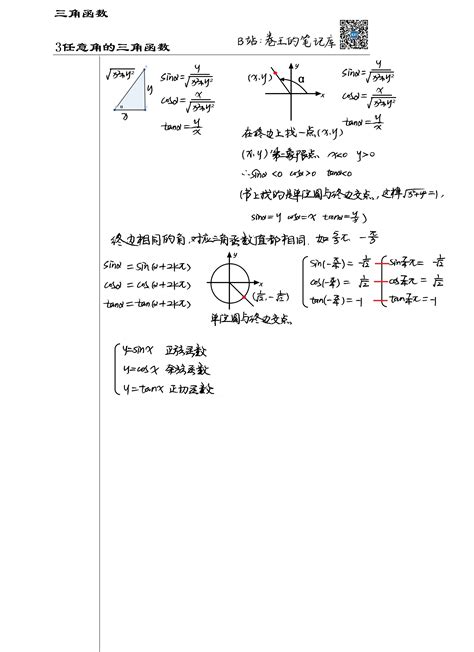 三角函数
3任意角的三角函数 B站：卷王的笔记库
√x²+y² y x α
sinα = y/√x²+y²
cosα = x/√x²+y²
tanα = y/x
(x,y) y α x
sinα = y/√x²+y²
cosα = x/√x²+y²
tanα = y/x
在终边上找一点(x,y)
(x,y)第二象限点、x<0 y>0
∴sinα<0 cosα>0 tanα<0
(书上找的是单位圆与终边交点、,这样√x²+y²=1,
sinα=y cosα=x tanα=y/x)
终边相同的角,对应三角函数值都相同.
sinα = sin(α+2kπ)
cosα = cos(α+2kπ)
tanα = tan(α+2kπ)
y x (1/√2, -1/√2)
单位圆与终边交点、
sin(-π/4) = -1/√2
cos(-π/4) = 1/√2
tan(-π/4) = -1
y=sinx 正弦函数
y=cosx 余弦函数
y=tanx 正切函数